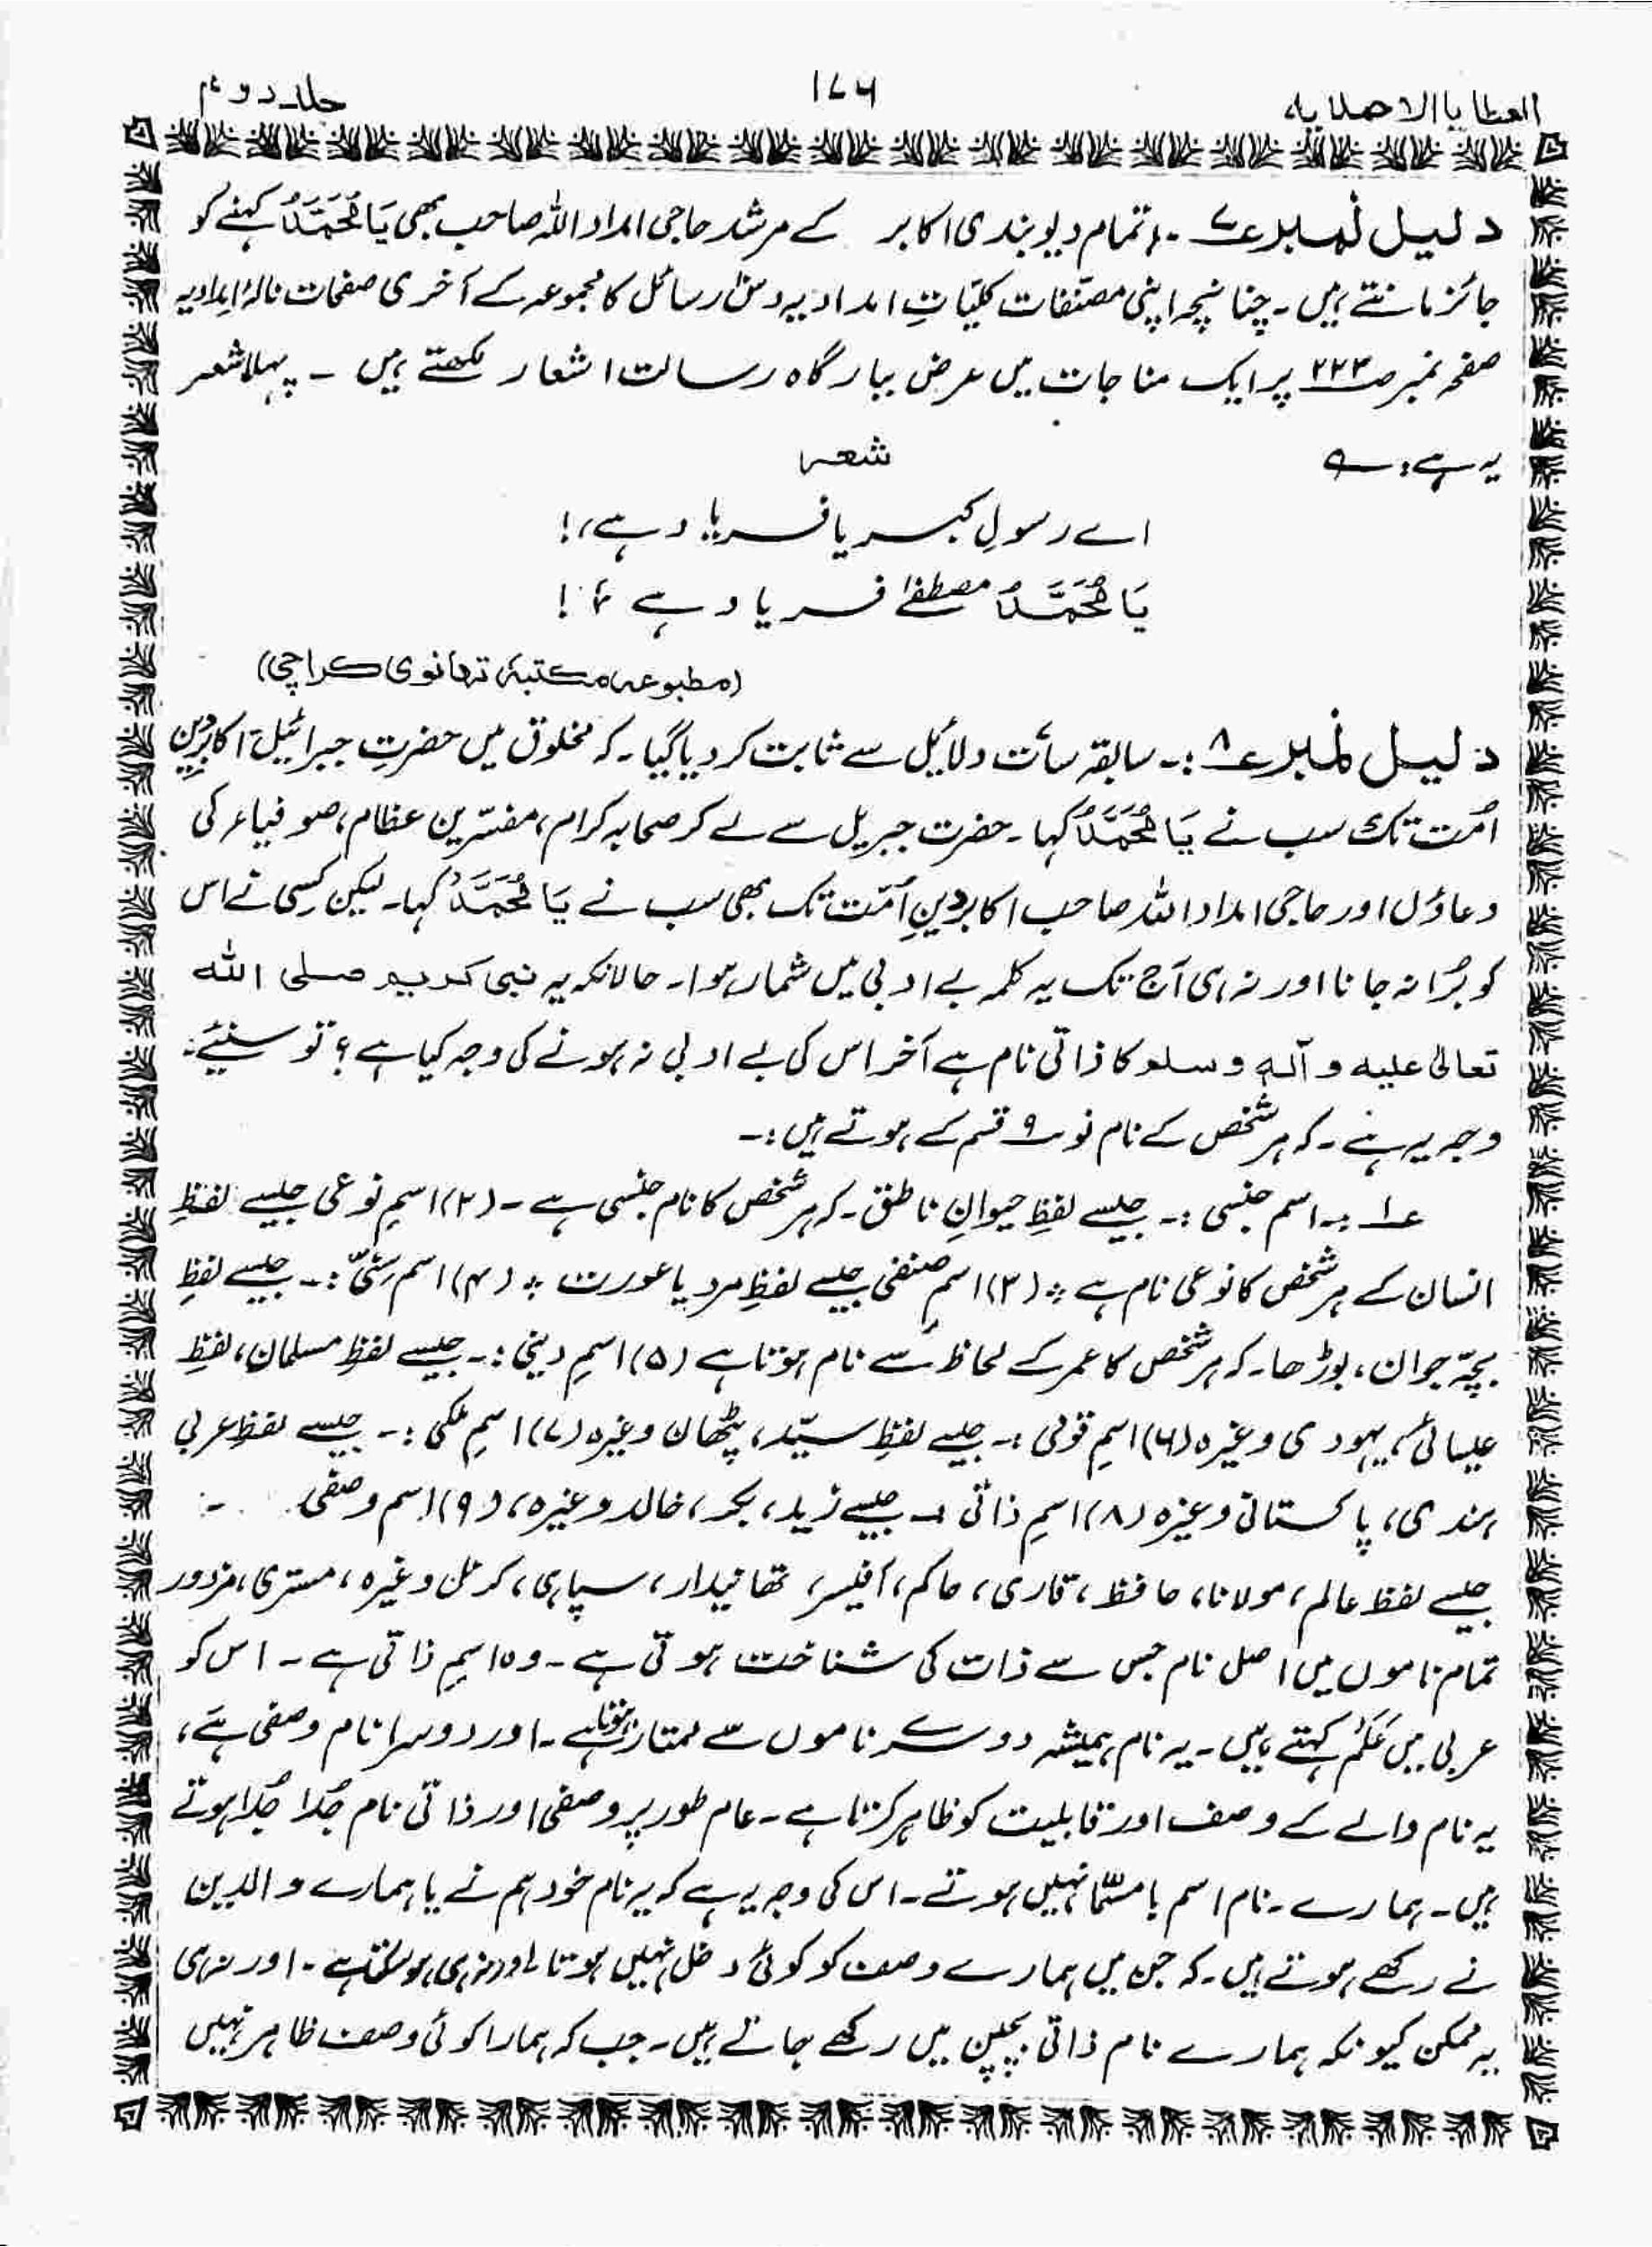 العطایا الاحمدیہ ۱۷۶ جلد دوم
دلیل نمبر ۷:۔ تمام دیوبندی اکابر کے مرشد حاجی امداد اللہ صاحب بھی یَا مُحَمَّدُ کہنے کو
جائز مانتے ہیں۔ چنانچہ اپنی مصنّفات کلیّاتِ امدادیہ دس رسائل کا مجموعہ کے آخری صفحات نالۂ امدادیہ
صفحہ نمبر ۲۲۳ پر ایک مناجات میں عرض ببارگاہ رسالت اشعار لکھتے ہیں ۔ پہلا شعر
یہ ہے:۔
شعر
اے رسولِ کبریا فریاد ہے،!
یَا مُحَمَّدُ مصطفےٰ فریاد ہے،!
(مطبوعہ مکتبۂ تھانوی کراچی)
دلیل نمبر ۸:۔ سابقہ سات دلائیل سے ثابت کر دیا گیا۔ کہ مخلوق میں حضرتِ جبرائیل تا اکابرینِ
اُمّت تک سب نے یَا مُحَمَّدُ کہا۔ حضرت جبریل سے لے کر صحابہ کرام، مفسّرین عظام، صوفیاء کی
دعاؤں اور حاجی امداد اللہ صاحب اکابرِ دینِ اُمّت تک بھی سب نے یَا مُحَمَّدُ کہا۔ لیکن کسِی نے اس
کو بُرا نہ جانا اور نہ ہی آج تک یہ کلمہ بے ادبی میں شمار ہوا۔ حالانکہ یہ نبی کریم صلی اللہ
تعالیٰ علیہ و آلہٖ وسلم کا ذاتی نام ہے آخر اس کی بے ادبی نہ ہونے کی وجہ کیا ہے؟ تو سنیئے:
وجہ یہ ہے۔ کہ ہر شخص کے نام نو ۹ قسم کے ہوتے ہیں:۔
۱:۔ اسم جنسی:۔ جیسے لفظِ حیوانِ ناطق۔ کہ ہر شخص کا نام جنسی ہے۔ (۲) اسمِ نوعی جیسے لفظِ
انسان کے ہر شخص کا نوعی نام ہے ٭ (۳) اسمِ صنفی جیسے لفظِ مرد یا عورت ٭ (۴) اسم سِنّی:۔ جیسے لفظِ
بچّہ جوان، بوڑھا۔ کہ ہر شخص کا عمر کے لحاظ سے نام ہوتا ہے (۵) اسمِ دینی:۔ جیسے لفظِ مسلمان، لفظِ
عیسائی، یہودی وغیرہ (۶) اسمِ قومی:۔ جیسے لفظِ سیّد، پٹھان وغیرہ (۷) اسمِ ملکی:۔ جیسے لفظِ عربی
ہندی، پاکستانی وغیرہ (۸) اسمِ ذاتی :۔ جیسے زید، بکر، خالد وغیرہ، (۹) اسم وصفی :۔
جیسے لفظ عالم، مولانا، حافظ، قاری، حاکم، آفیسر، تھانیدار، سپاہی، کرنل وغیرہ، مستری، مزدور
تمام ناموں میں اصل نام جس سے ذات کی شناخت ہوتی ہے۔ وہ اسمِ ذاتی ہے۔ اس کو
عربی میں عَلَم کہتے ہیں۔ یہ نام ہمیشہ دوسرے ناموں سے ممتاز ہوتا ہے۔ اور دوسرا نام وصفی ہے،
یہ نام والے کے وصف اور قابلیت کو ظاہر کرتا ہے۔ عام طور پر وصفی اور ذاتی نام جُدا جُدا ہوتے
ہیں۔ ہمارے۔ نام اسم بامسمّٰا نہیں ہوتے۔ اس کی وجہ یہ ہے کہ یہ نام خود ہم نے یا ہمارے والدین
نے رکھے ہوتے ہیں۔ کہ جن میں ہمارے وصف کو کوئی دخل نہیں ہوتا اور نہ ہی ہو سکتا ہے۔ اور نہ ہی
یہ ممکن کیونکہ ہمارے نام ذاتی بچپن میں رکھے جاتے ہیں۔ جب کہ ہمارا کوئی وصف ظاہر نہیں